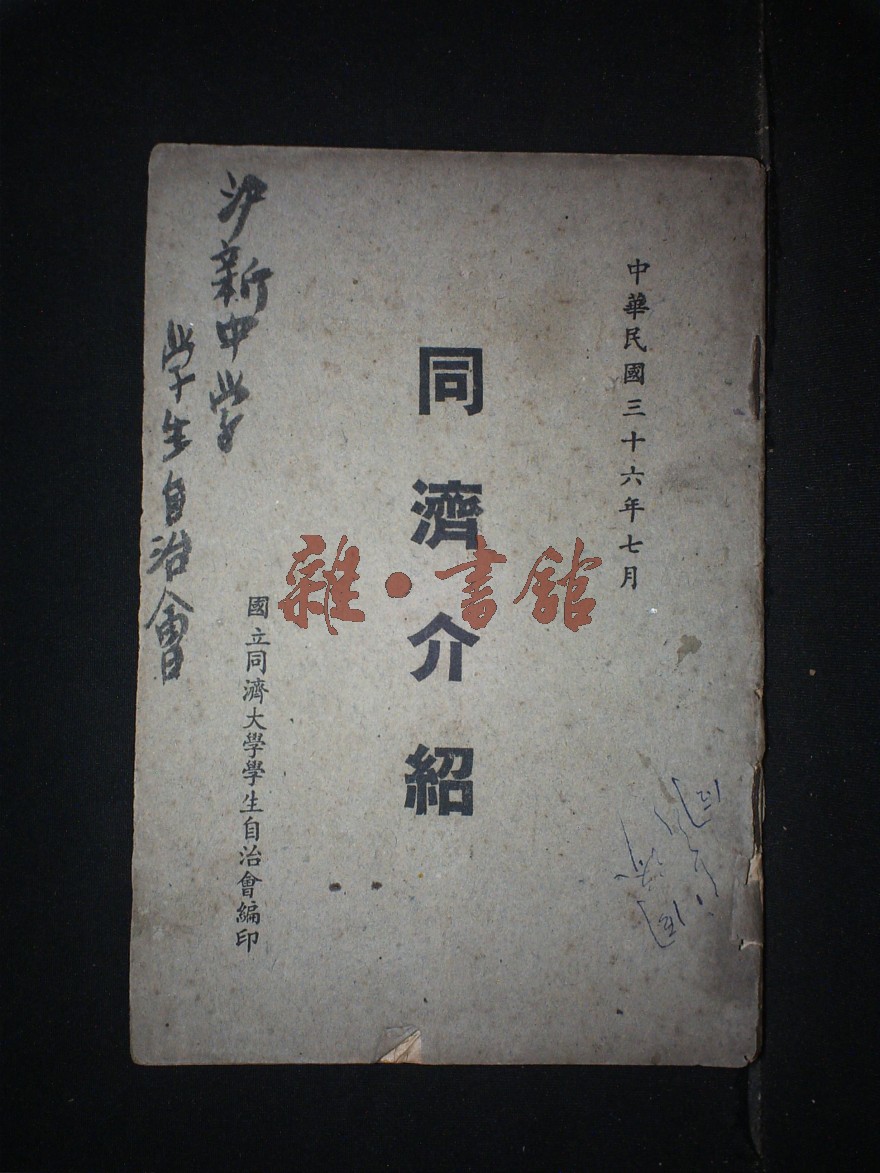 中華民國三十六年七月
同濟介紹
國立同濟大學學生自治會編印
沙新中学
学生自治會
雜·書館